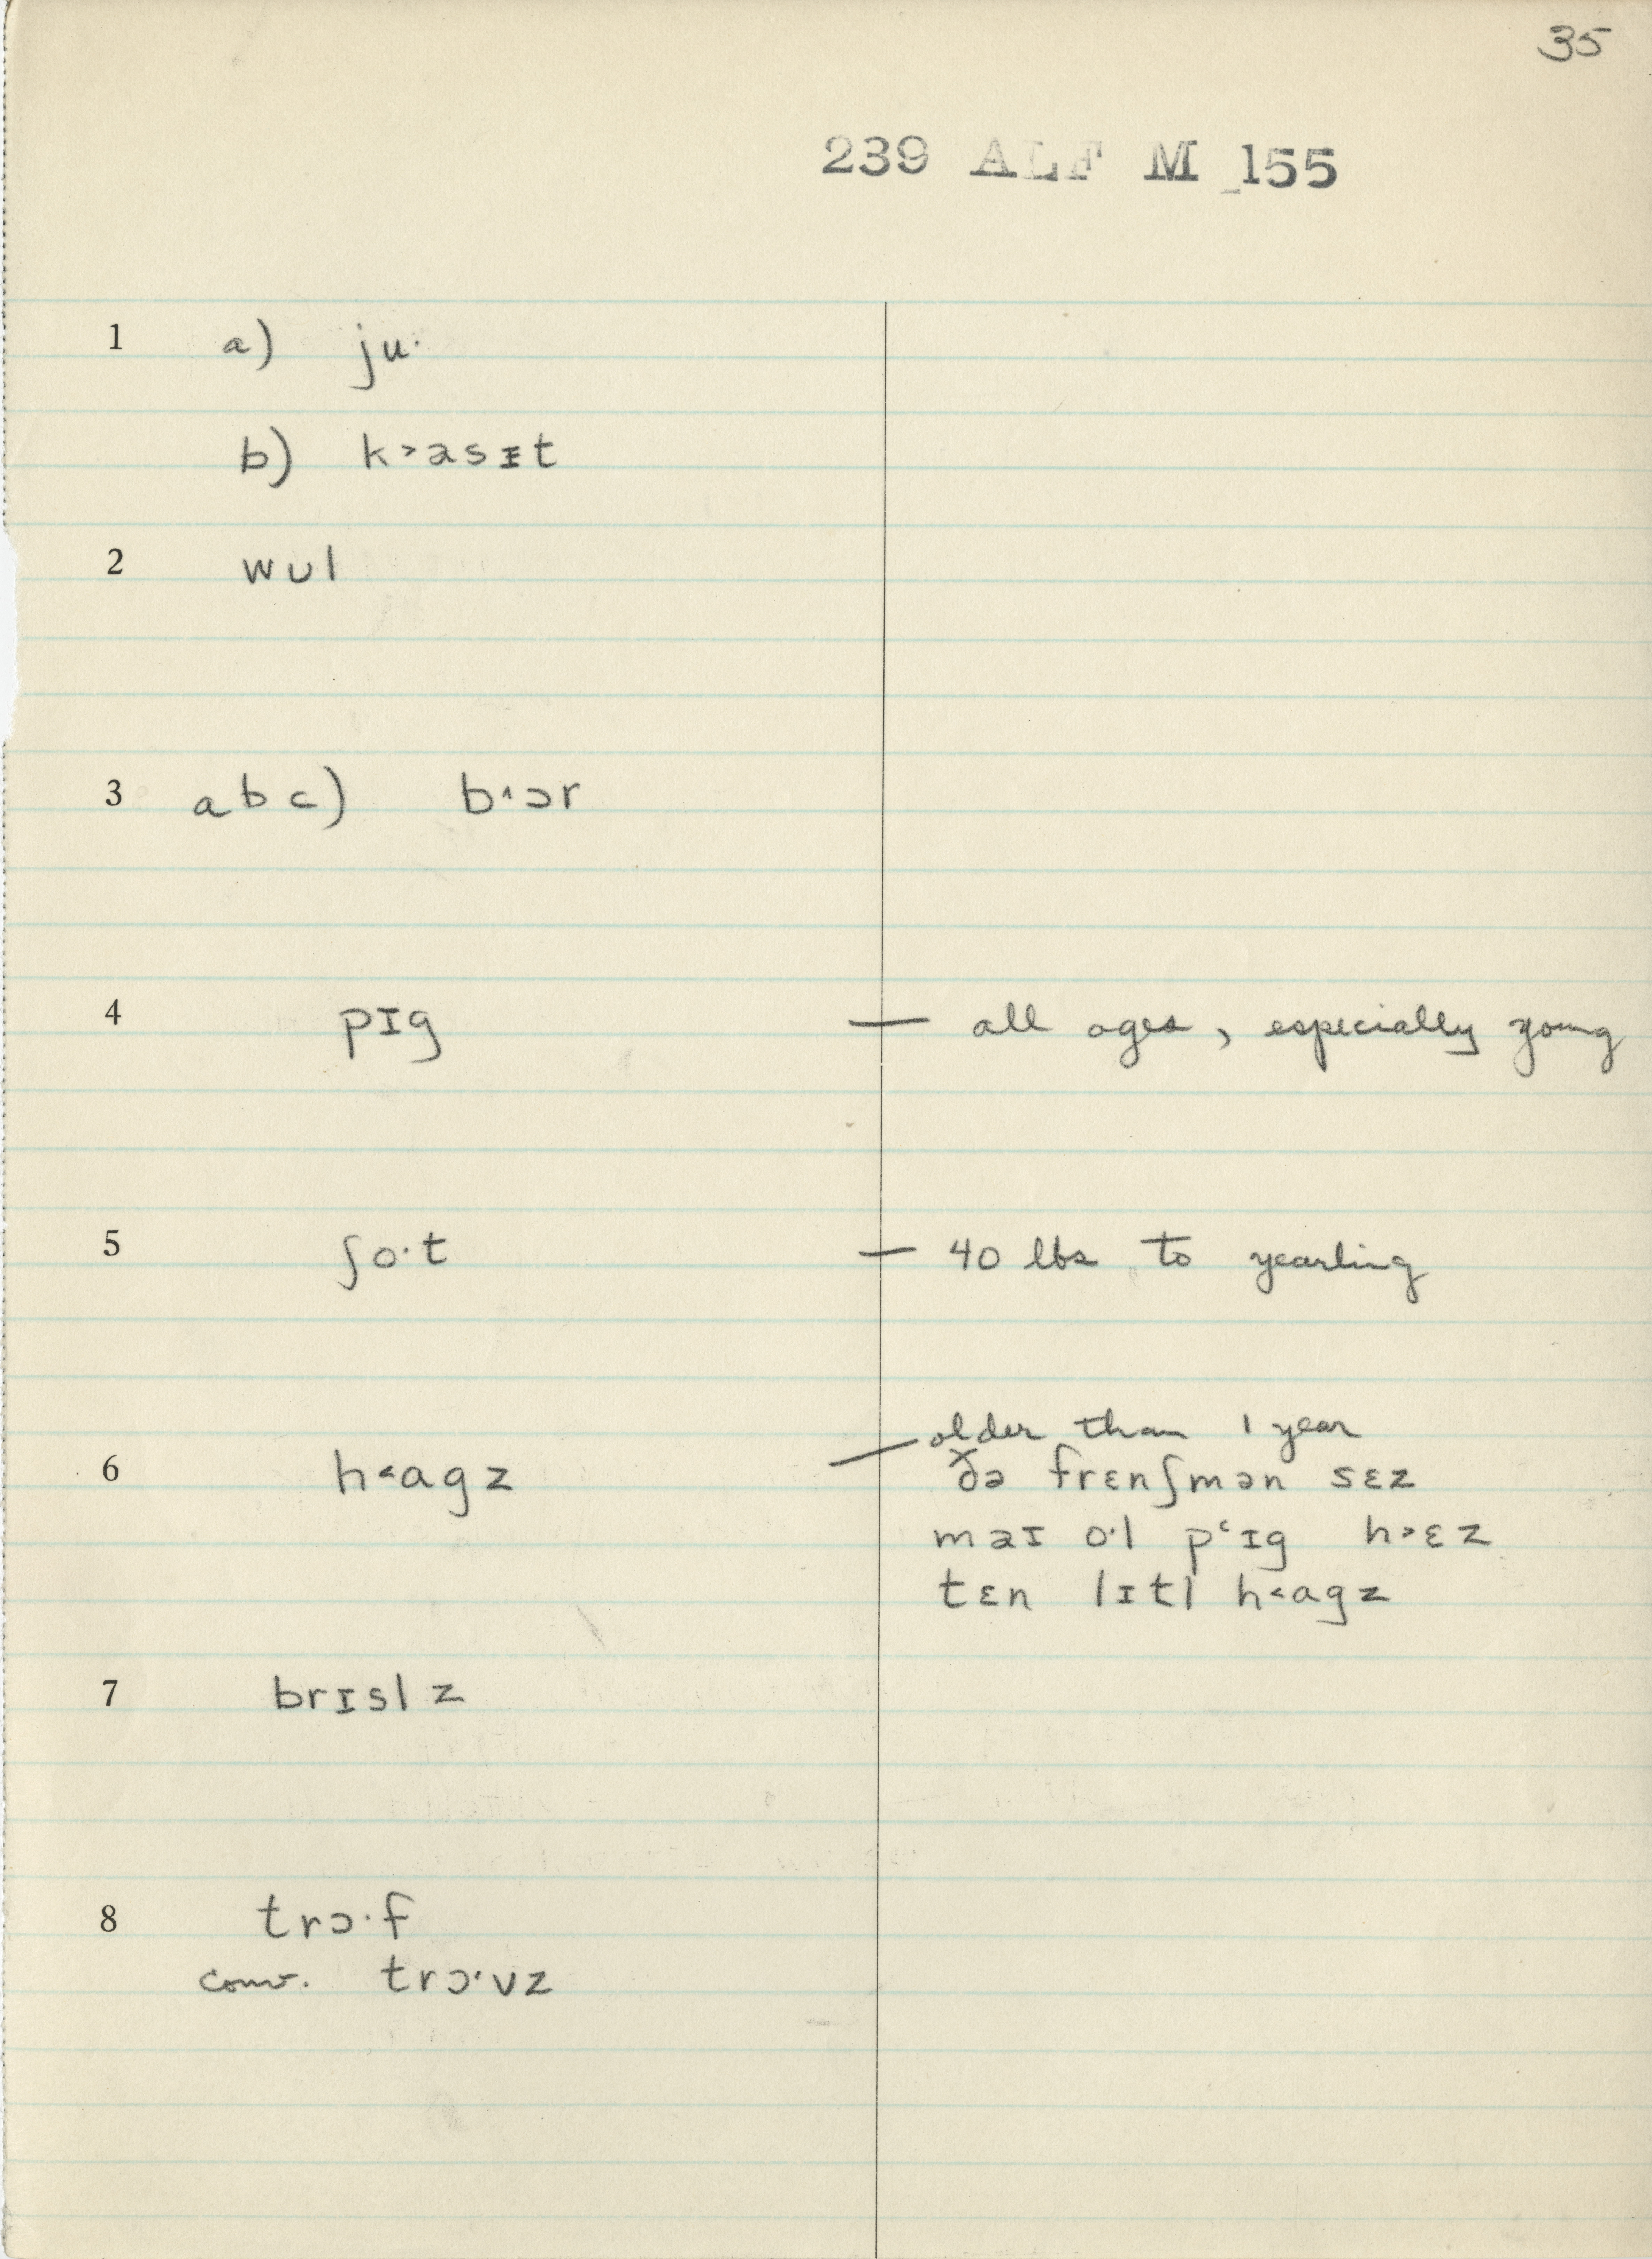 35
239 ALF M 155
1 a) ju·
b) k˃asɪt
2 wul
3 abc) b˄ɔr
4 pɪg — all ages, especially young
5 ʃo·t — 40 lbs to yearling
6 h˂agz — older than 1 year
ðə frɛnʃmən sɛz
maɪ o·l pʻɪg h˃ɛz
tɛn lɪtl h˂agz
7 brɪslz
8 trɔ·f
conv. trɔ·vz